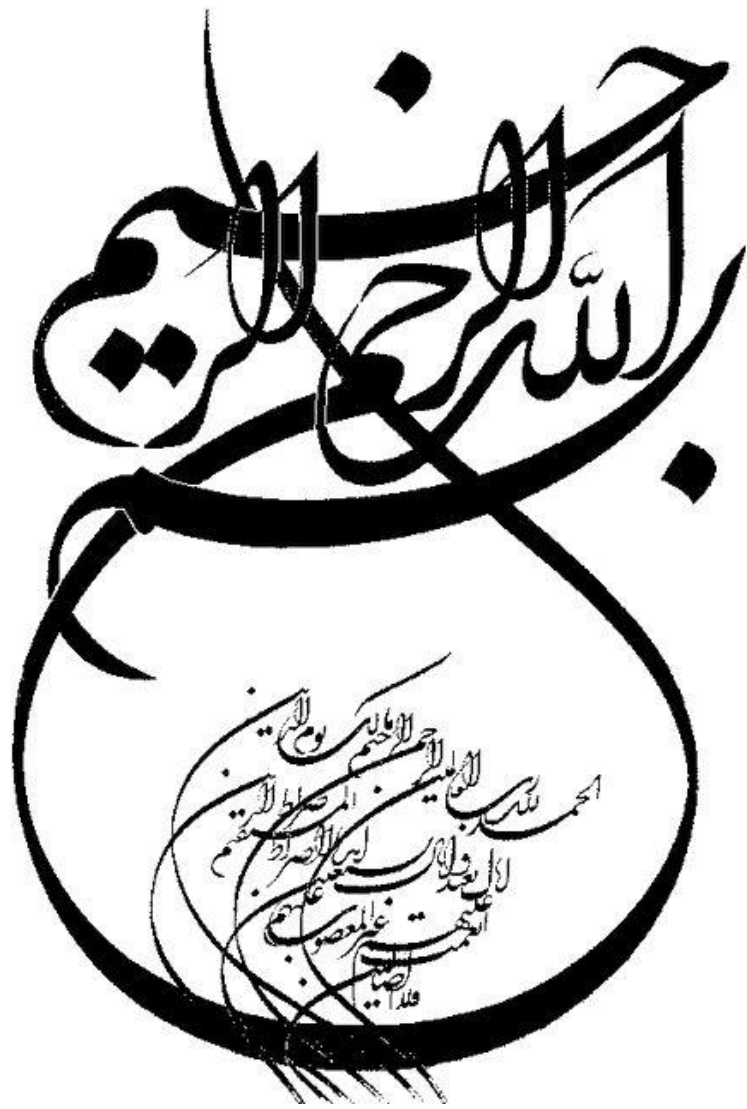 بسم
الله الرحمن الرحیم
الحمد لله رب العالمین
الرحمن الرحیم مالک یوم الدین
ایاک نعبد و ایاک نستعین
اهدنا الصراط المستقیم
صراط الذین انعمت علیهم
غیر المغضوب علیهم
ولا الضالین